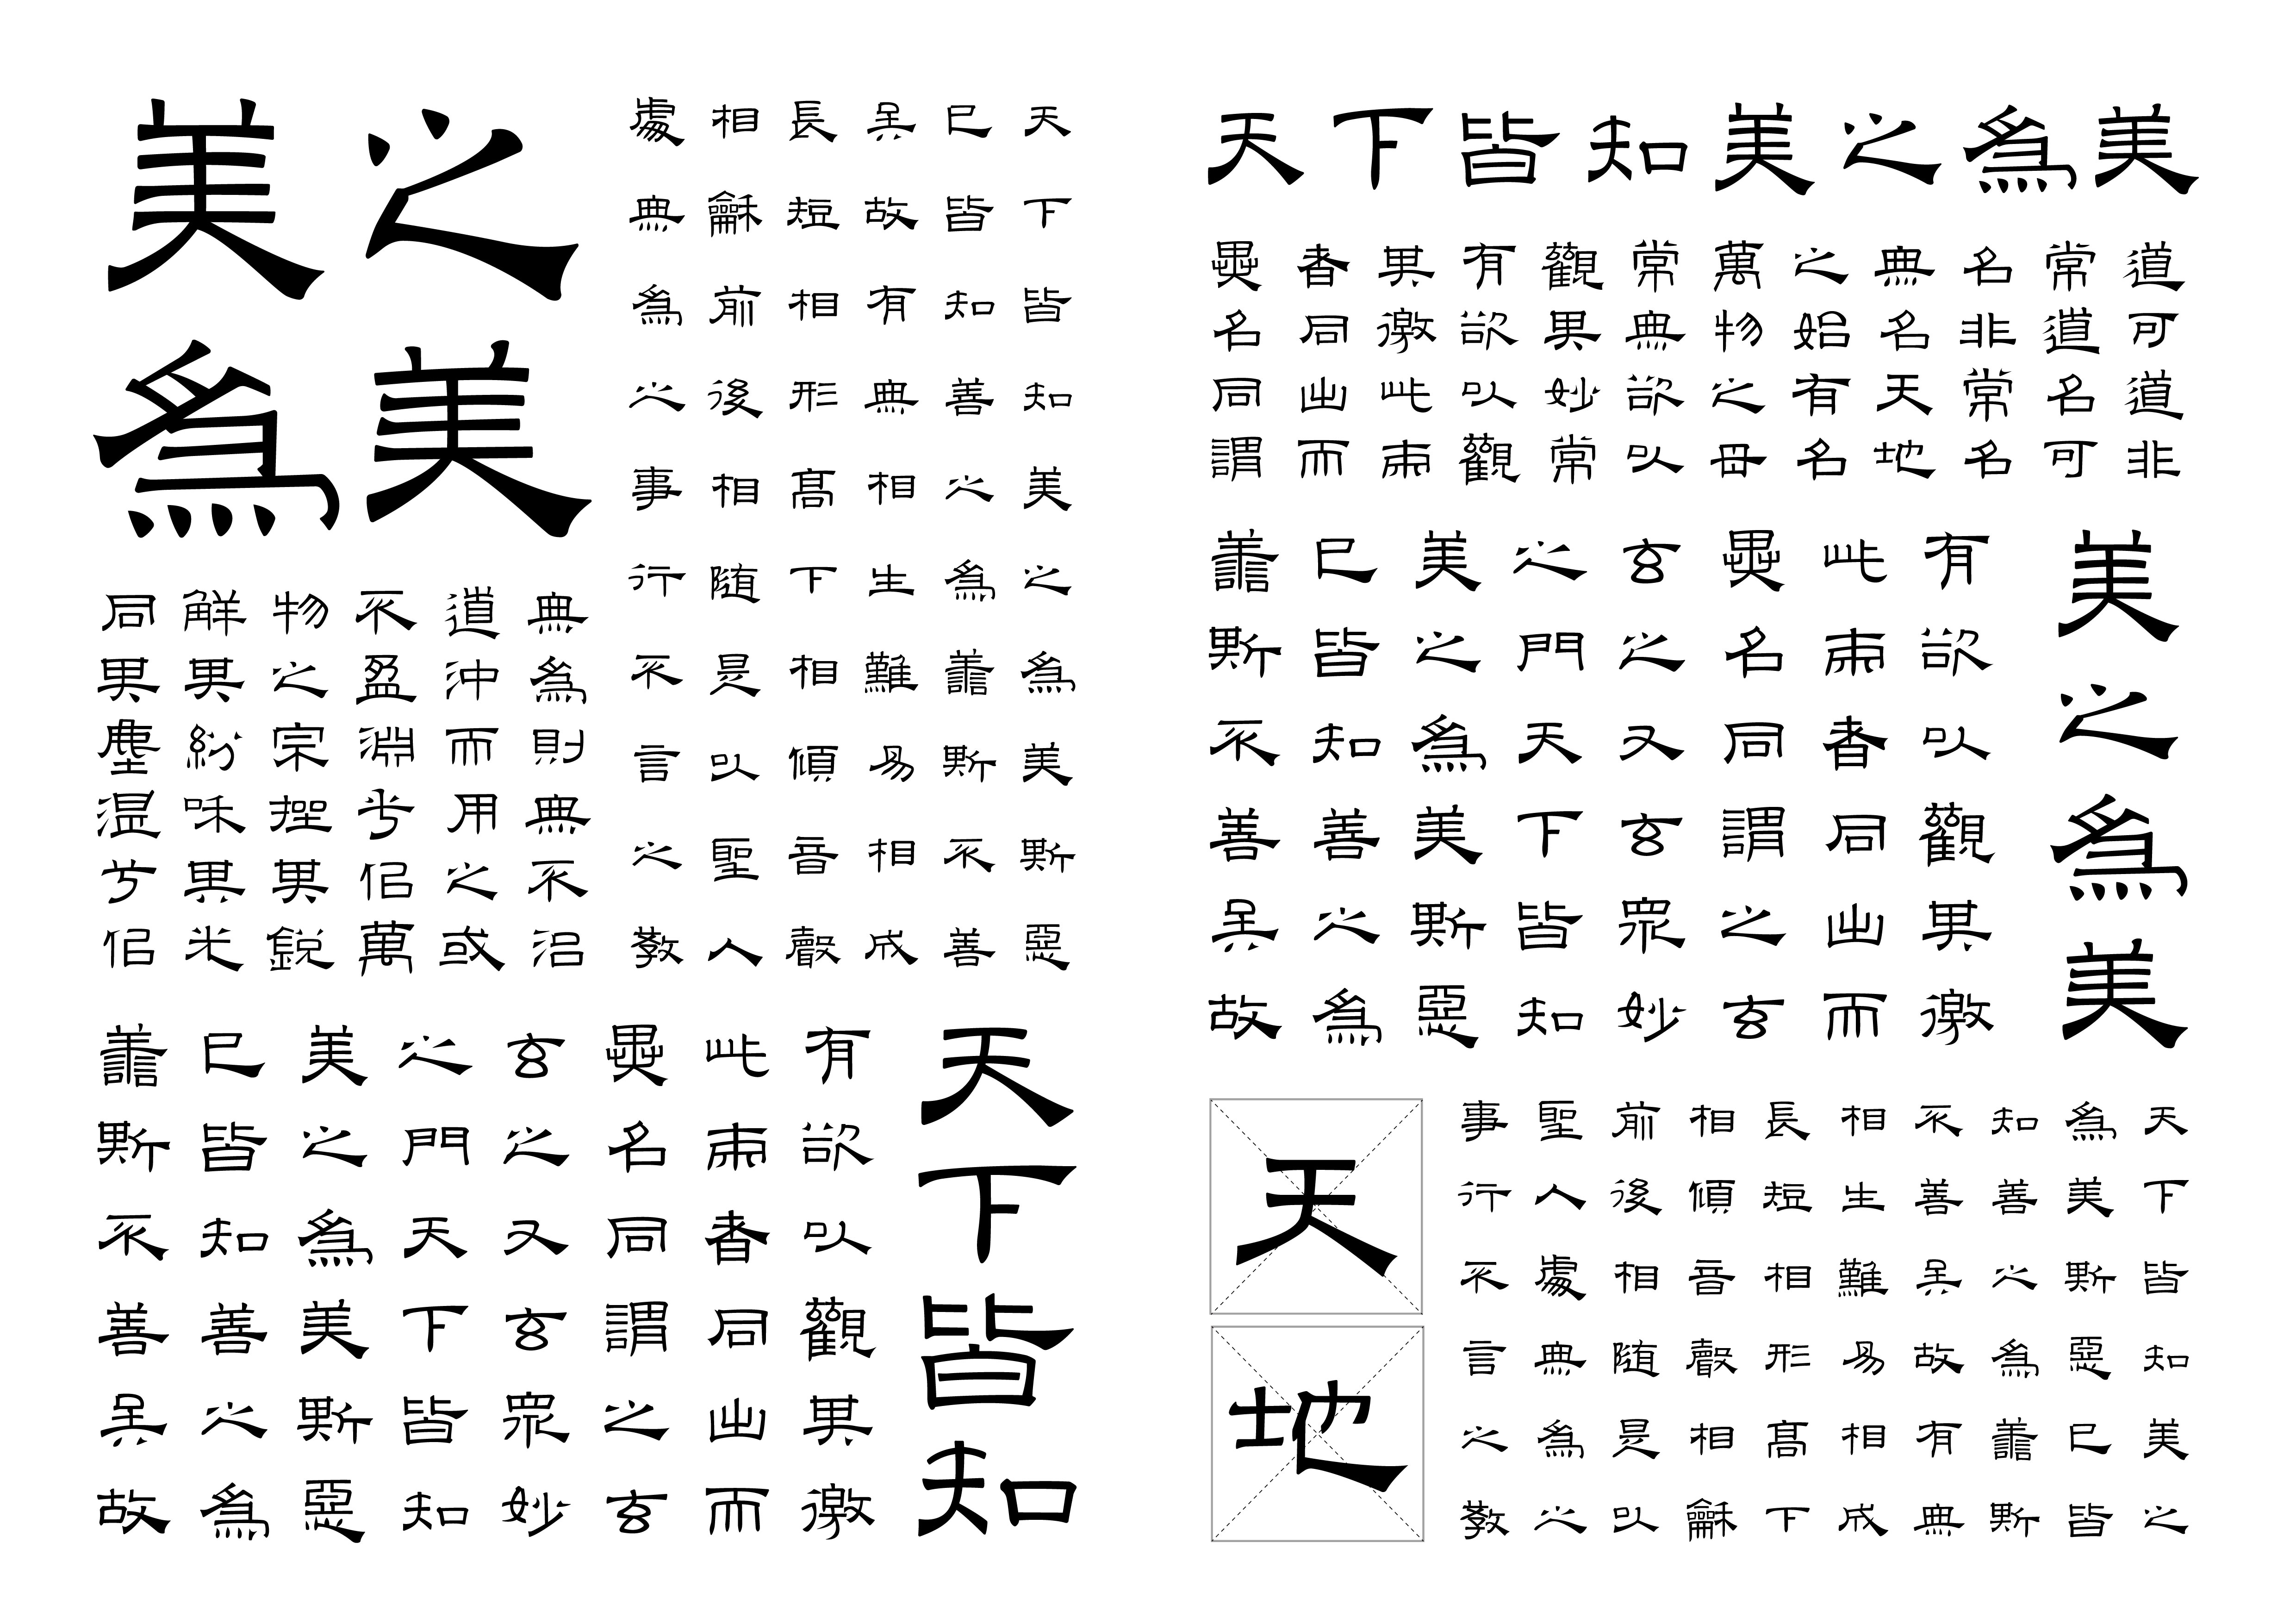 天下皆知美之為美
道可道非
常道名可
名非常名
無名天地
之始有名
萬物之母
常無欲以
觀其妙常
有欲以觀
其徼此兩
者同出而
異名同謂
美之為美
有欲以觀其徼
此兩者同出而
異名同謂之玄
玄之又玄眾妙
之門天下皆知
美之為美斯惡
已皆知善之為
善斯不善矣故
天下皆知美之
為美斯惡已皆
知善之為善斯
不善矣故有無
相生難易相成
長短相形髙下
相傾音聲相龢
前後相随是以
聖人處無為之
事行不言之教
天
地
美之
為美
天下皆知美之為美斯惡
已皆知善之為善斯不善
矣故有無相生難易相成
長短相形髙下相傾音聲
相龢前後相随是以聖人
處無為之事行不言之教
無為則無不治
道沖而用之或
不盈淵兮佀萬
物之宗挫其銳
解其紛和其光
同其塵湛兮佀
天下皆知
有欲以觀其徼
此兩者同出而
異名同謂之玄
玄之又玄眾妙
之門天下皆知
美之為美斯惡
已皆知善之為
善斯不善矣故